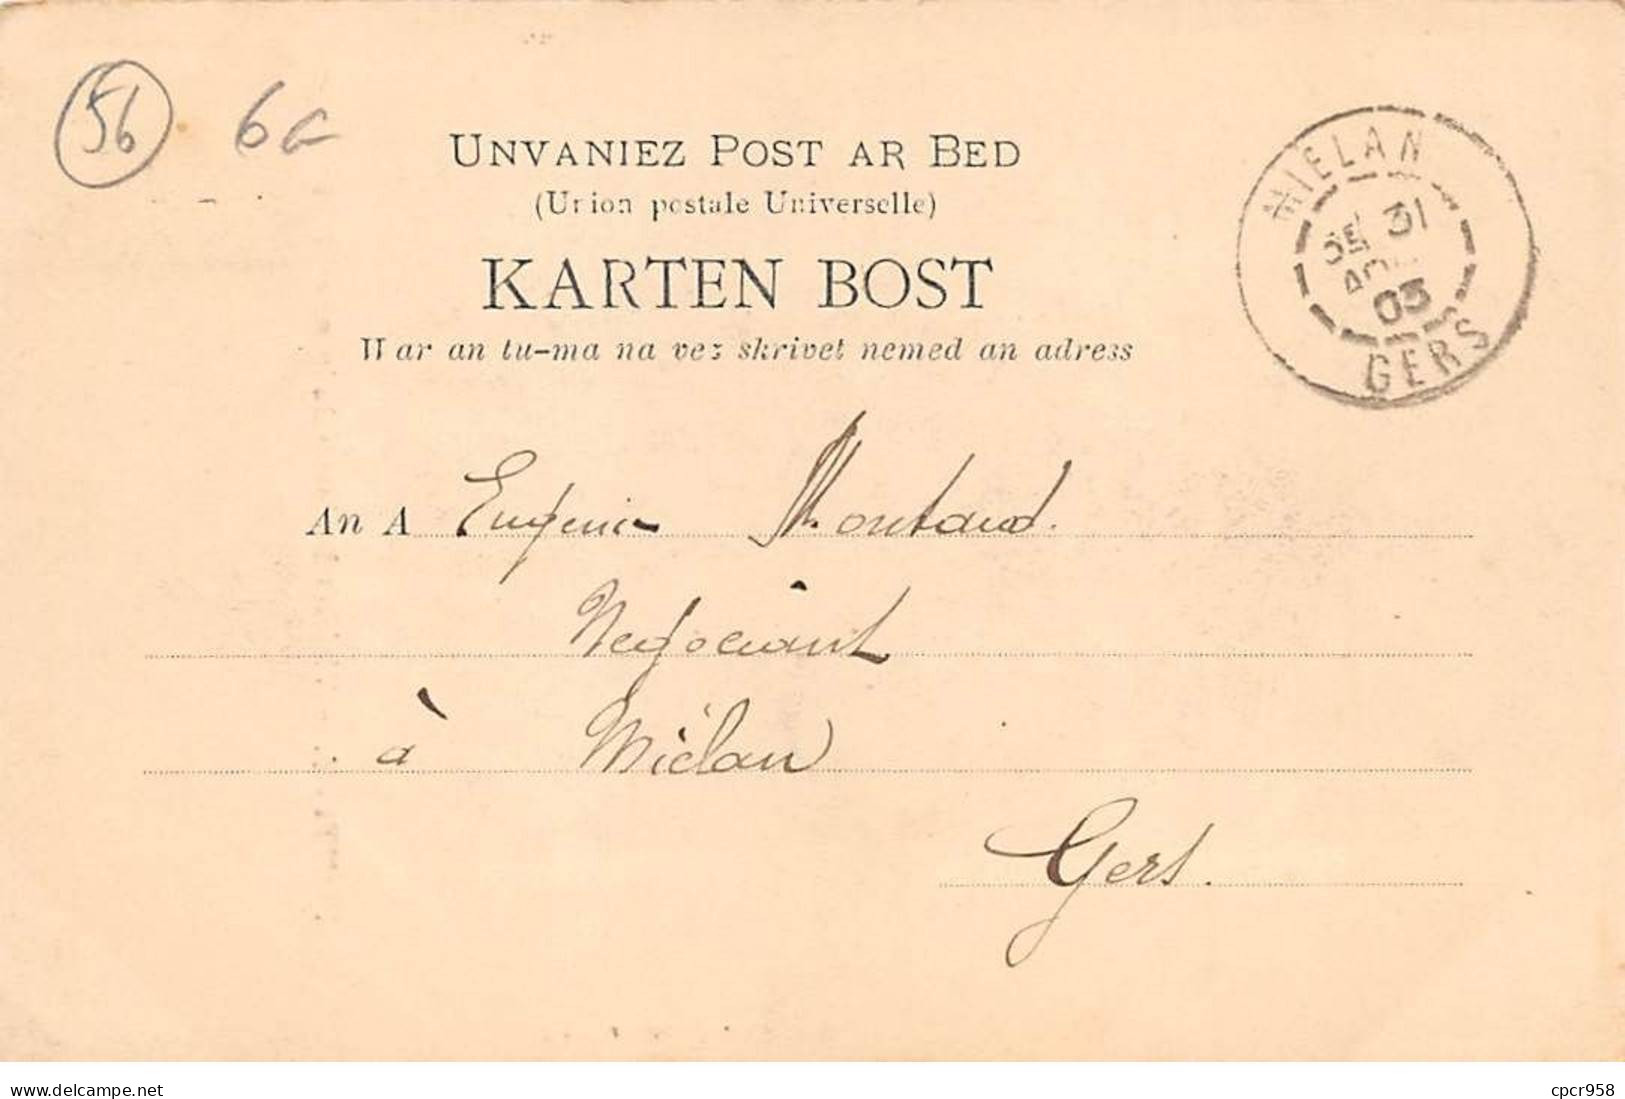 56 6€
UNVANIEZ POST AR BED
(Union postale Universelle)
KARTEN BOST
War an tu-ma na vez skrivet nemed an adress
MIELAN
31
AOU
03
GERS
An A Eugenie Montaud.
Négociant
à Miélan
Gers.
delcampe.net
cpcr958